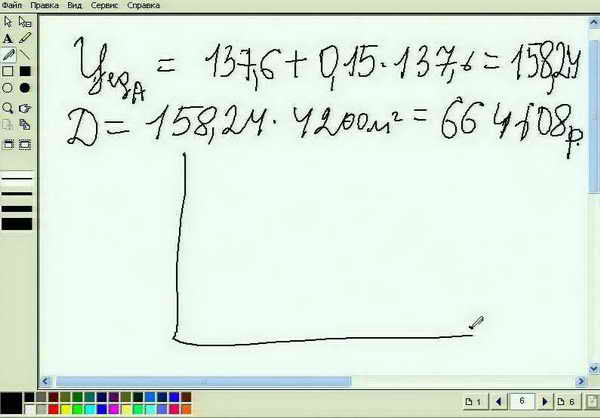 Файл Правка Вид Сервис Справка
Цед А = 137,6 + 0,15 · 137,6 = 158,24
Д = 158,24 · 4200 м² = 664608 р.
1 6 6